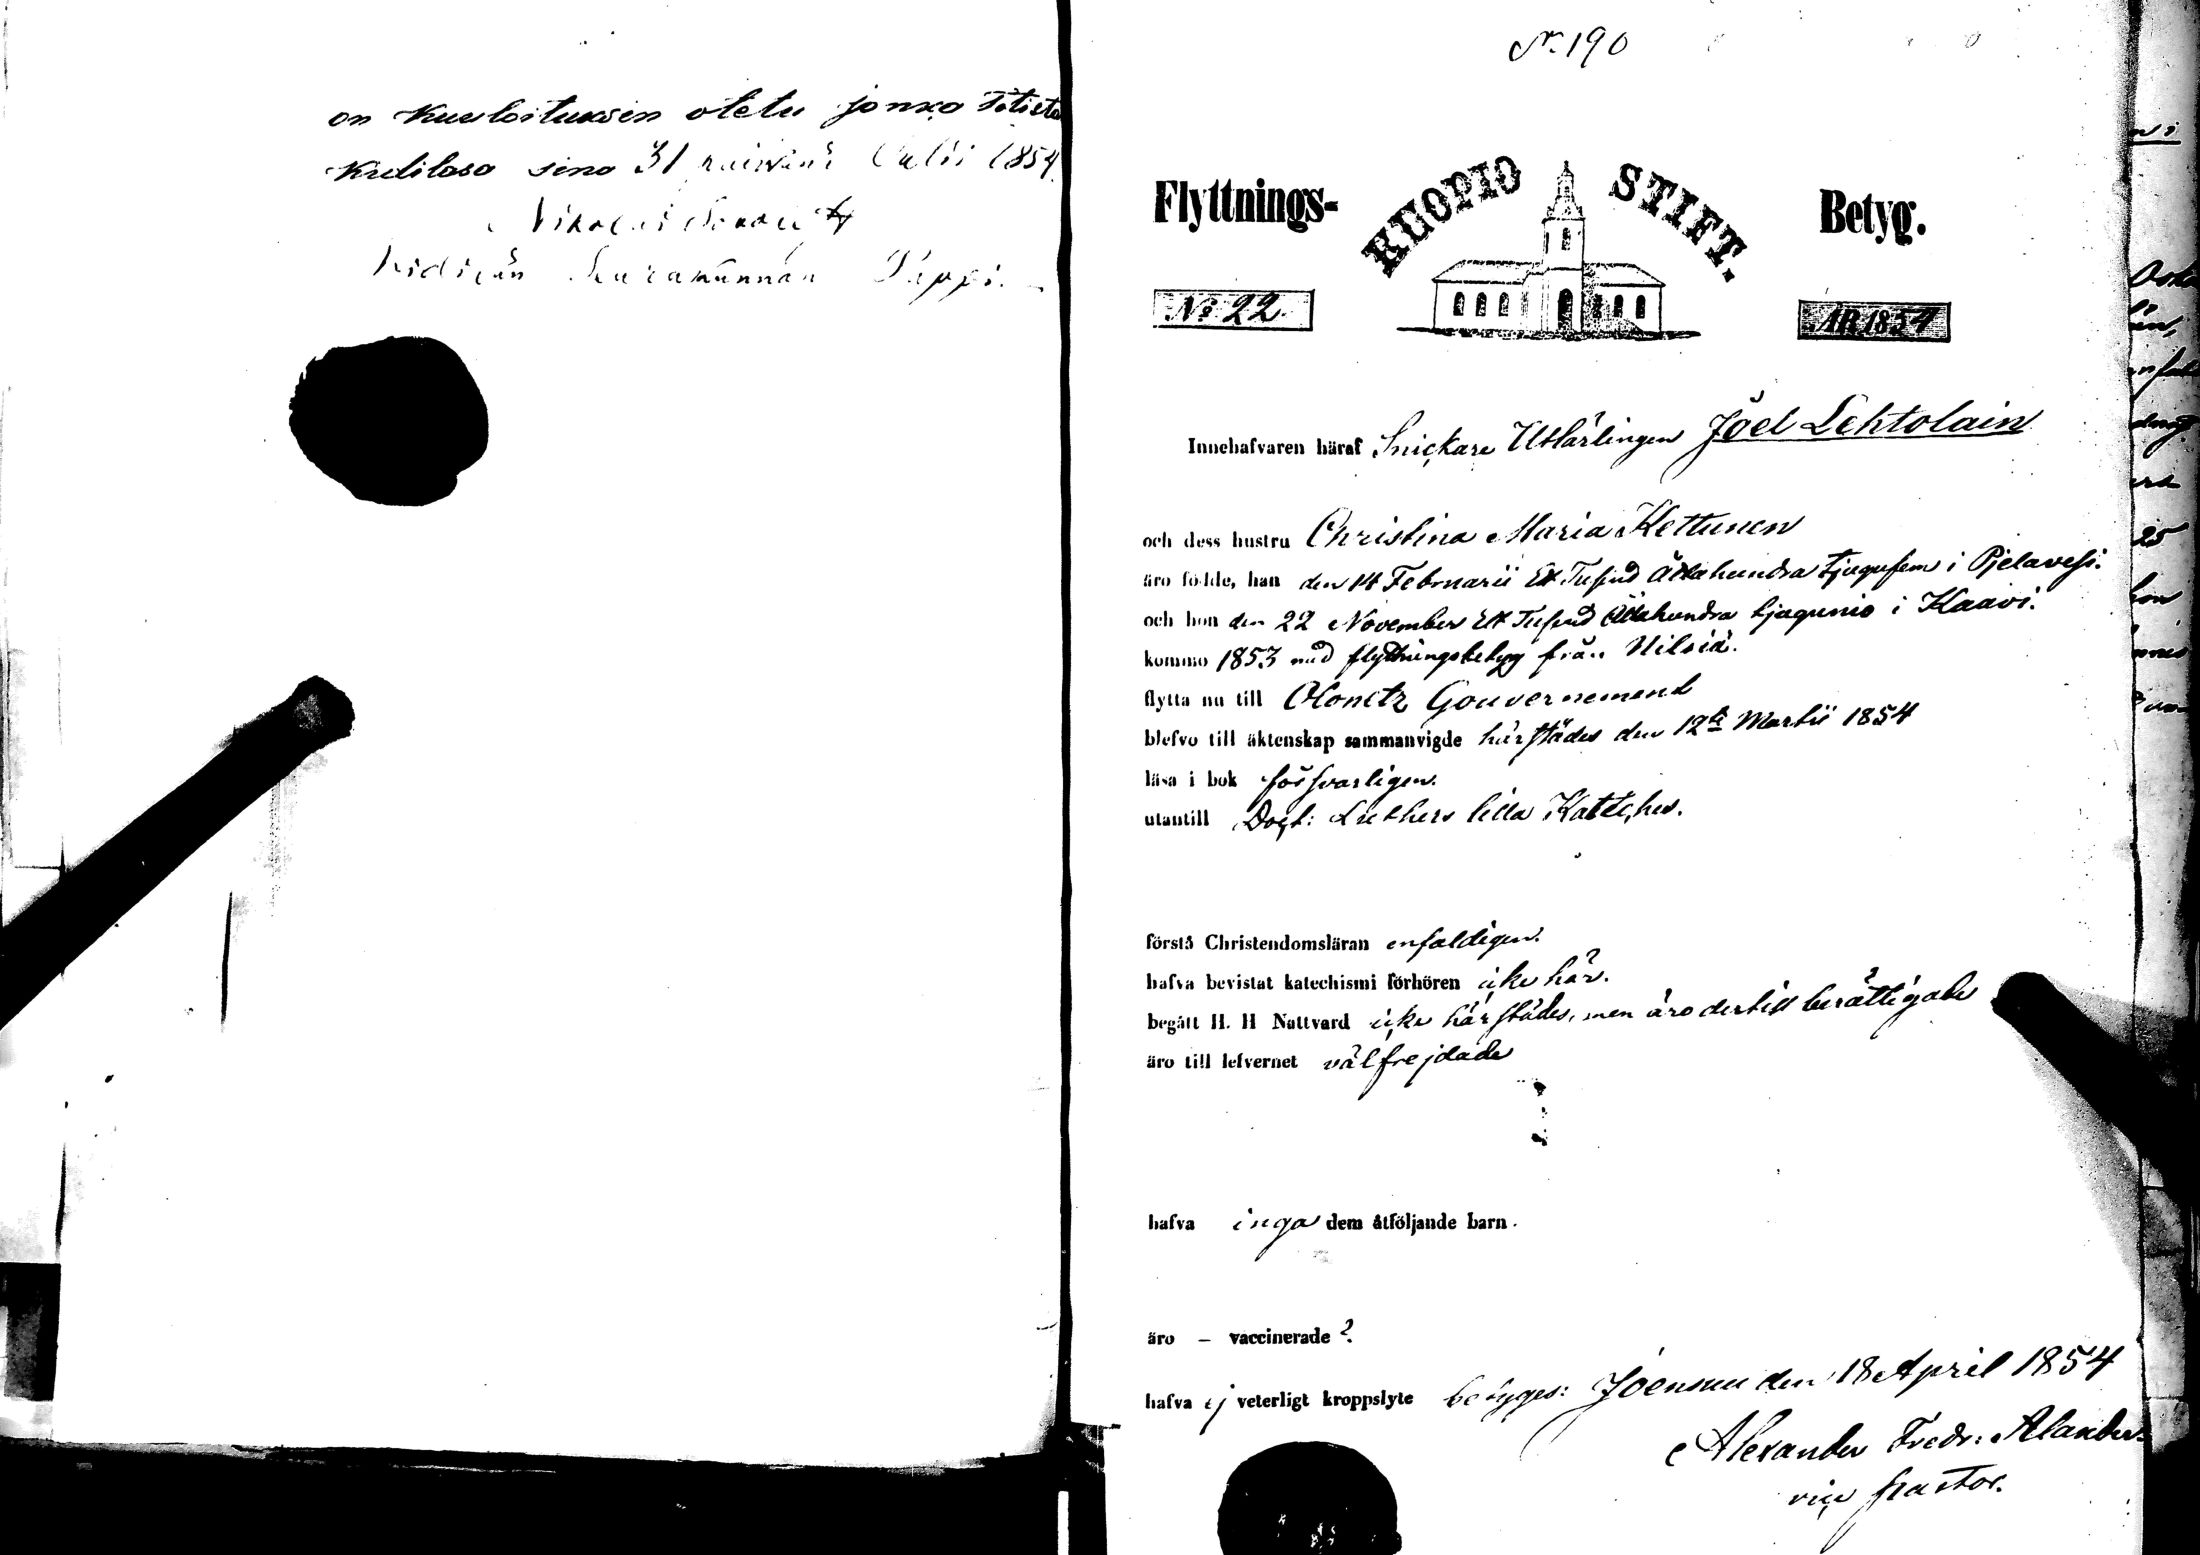 on Kuuloituksen otetu jonka Totista
Kidilasa sina 31 Julii 1854
Nikolai
Kidilän Seurakunnan Pappi.
No. 190
Flyttnings- KUOPIO STIFT. Betyg.
No 22
ÅR 1854
Innehafvaren häraf Snickare Utlärlingen Joel Lehtolain
och dess hustru Christina Maria Kettunen
äro födde, han den 14 Februarii Ett Tusend Åttahundra tjugufem i Pjelavesi.
och hon den 22 November Ett Tusend Åttahundra tjugunio i Kaavi.
kommo 1853 med flyttningsbetyg från Nilsiä.
flytta nu till Olonetz Gouvernement
blefvo till äktenskap sammanvigde härstädes den 12te Martii 1854
läsa i bok försvarligen.
utantill Doct: Luthers lilla Kateches.
förstå Christendomsläran enfaldigen.
hafva bevistat katechismi förhören icke här.
begått H. H Nattvard icke härstädes, men äro dertill berättigade
äro till lefvernet välfrejdade
hafva inga dem åtföljande barn.
äro – vaccinerade?
hafva ej veterligt kroppslyte betyges: Joensuu den 18 April 1854
Alexander Fredr: Alander
vice pastor.